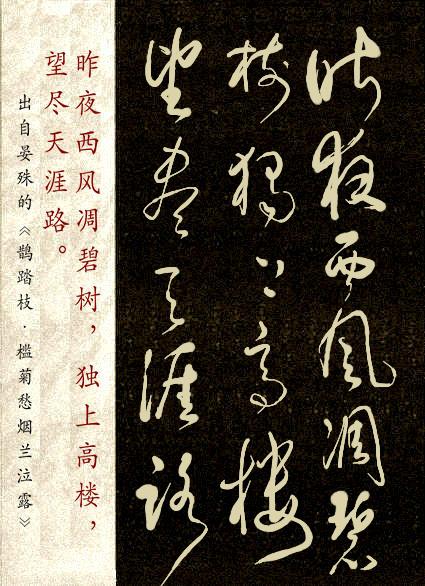 昨夜西风凋碧
树独上高楼
望尽天涯路
昨夜西风凋碧树，独上高楼，
望尽天涯路。
出自晏殊的《鹊踏枝·槛菊愁烟兰泣露》